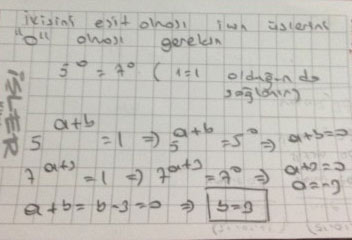 ikisinin eşit olması için üslerinin
"0" olması gerekir
5⁰ = 7⁰ ( 1=1 olduğunda sağlanır)
5^(a+b) = 1 ⇒ 5^(a+b) = 5⁰ ⇒ a+b=0
7^(a+3) = 1 ⇒ 7^(a+3) = 7⁰ ⇒ a+3=0
a=-3
a+b = b-3=0 ⇒ b=3
İŞLER